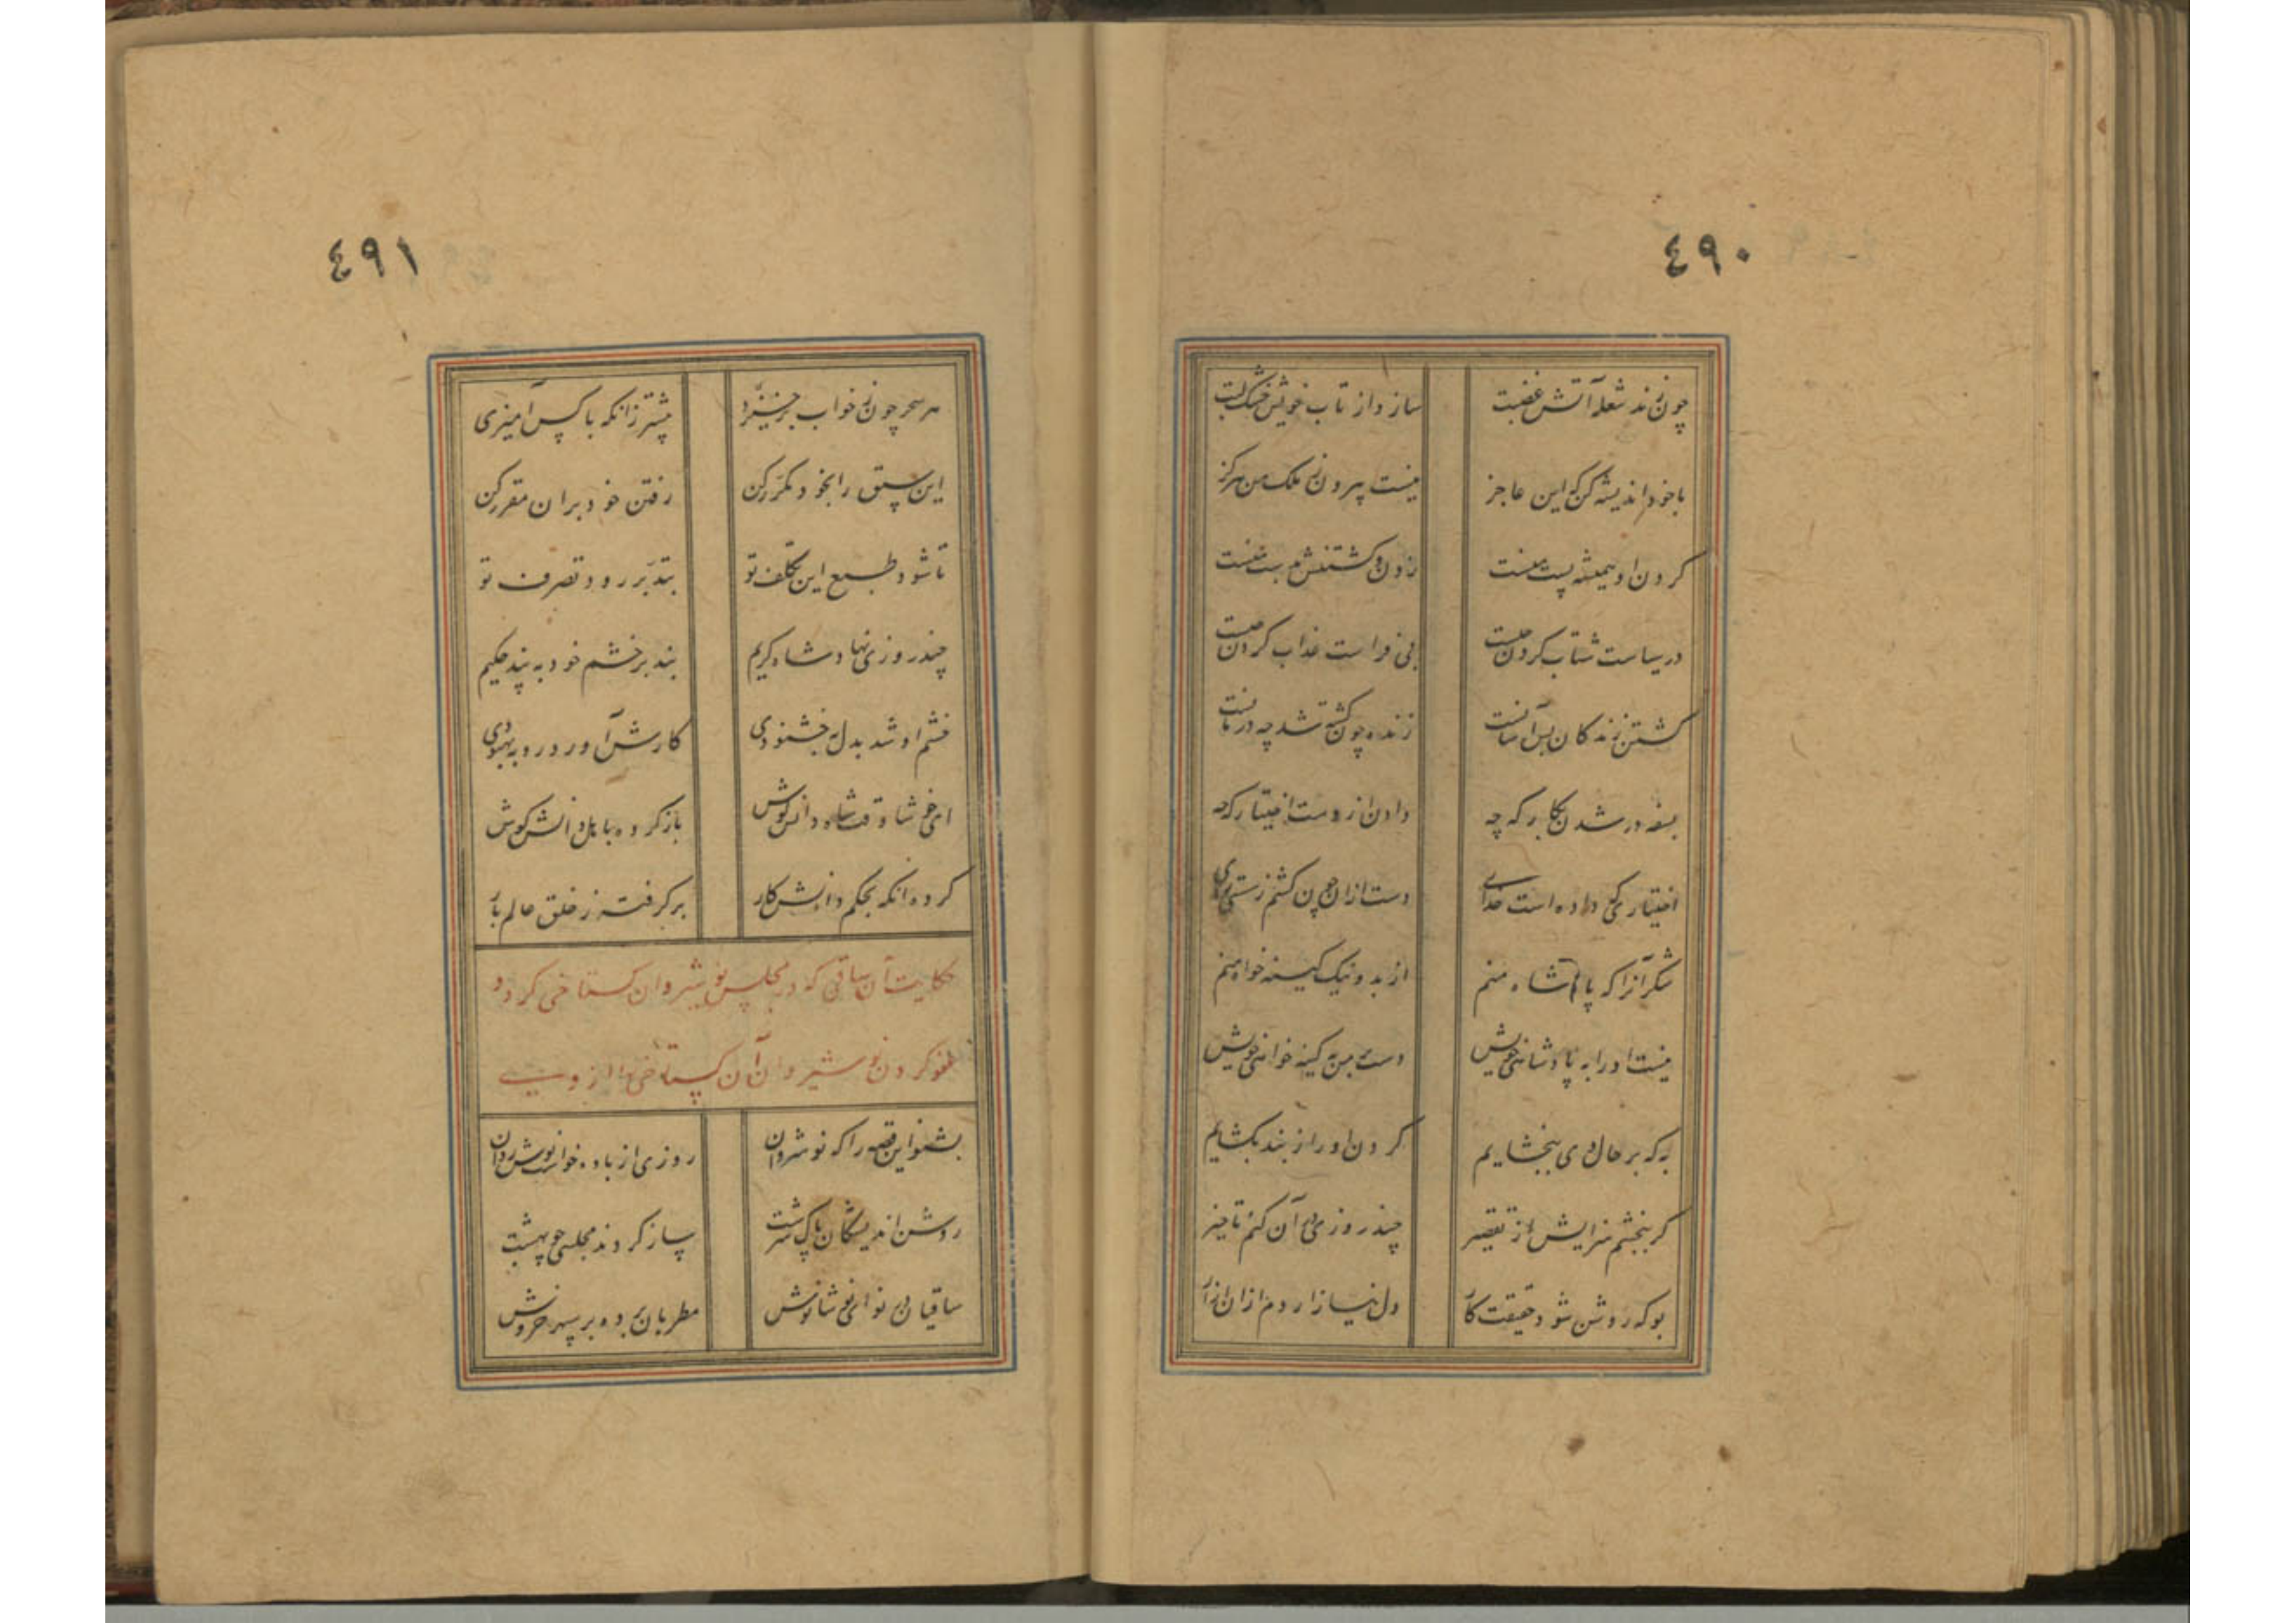 ٤٩٠
چون زند شعله آتش غضبت سازد از تاب خویش خشک لبت
با خود اندیشه کن که این عاجز نیست بیرون ز ملک من هرگز
گردن او همیشه پست منست زدن و کشتنش بدست منست
در سیاست شتاب کردن چیست بی فراست عذاب کردن چیست
کشتن زندگان بس آسانست زنده چون کشته شد چه درمانست
بسفه در شدن بکار که چه دادن از دست اختیار که چه
اختیاری که داده است خدای دست ازان چون کشم ز سستی رای
شکر آنرا که پادشاه منم از بد و نیک کینه خواه منم
نیست او را به پادشاهی خویش دست من به کینه خواهی خویش
به که بر حال وی ببخشایم گردن او را ز بند بگشایم
گر نبخشم سزایش از تقصیر چند روزی در آن کنم تاخیر
بو که روشن شود حقیقت کار دل نیازاردم ازان آزار
٤٩١
هر سحر چون ز خواب برخیزی پیشتر زانکه با کس آمیزی
این سبق را بخود مکرر کن رفتن خود بران مقرر کن
تا شود طبع این تکلف تو بتدبر رود تصرف تو
چند روزی نهاد شاه کریم بند بر خشم خود به پند حکیم
خشم او شد بدل به خشنودی کارش آورد رو به بهبودی
ای خوشا وقت شاه دانش کوش باز کرده باهل دانش گوش
کرده آنکه بحکم دانش کار برگرفته ز خلق عالم بار
حکایت آن ساقی که در مجلس نوشیروان گستاخی کرد و
عفو کردن نوشیروان آن گستاخی را از وی
بشنو این قصه را که نوشروان روزی از باده خواست نوش روان
روشن اندیشگان پاک سرشت ساز کردند مجلسی چو بهشت
ساقیان در نوای نوشانوش مطربان برده بر سپهر خروش